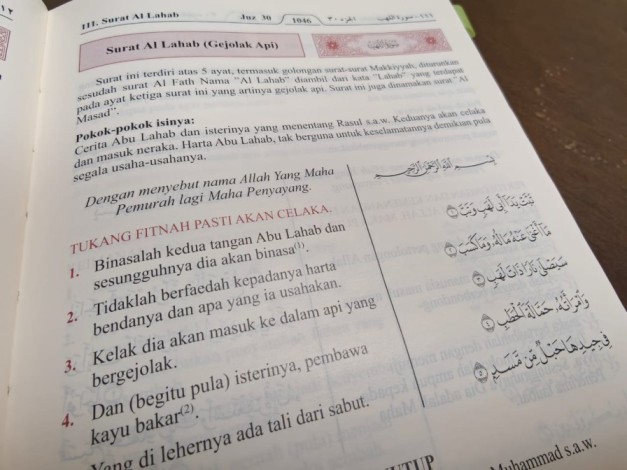 III. Surat Al Lahab
Juz 30
1046
Surat Al Lahab (Gejolak Api)
Surat ini terdiri atas 5 ayat, termasuk golongan surat-surat Makkiyyah, diturunkan
sesudah surat Al Fath Nama "Al Lahab" diambil dari kata "Lahab" yang terdapat
pada ayat ketiga surat ini yang artinya gejolak api. Surat ini juga dinamakan surat "Al
Masad".
Pokok-pokok isinya:
Cerita Abu Lahab dan isterinya yang menentang Rasul s.a.w. Keduanya akan celaka
dan masuk neraka. Harta Abu Lahab, tak berguna untuk keselamatannya demikian pula
segala usaha-usahanya.
Dengan menyebut nama Allah Yang Maha
Pemurah lagi Maha Penyayang.
بِسْمِ اللَّهِ الرَّحْمَٰنِ الرَّحِيمِ
TUKANG FITNAH PASTI AKAN CELAKA.
1. Binasalah kedua tangan Abu Lahab dan
sesungguhnya dia akan binasa(1).
2. Tidaklah berfaedah kepadanya harta
bendanya dan apa yang ia usahakan.
3. Kelak dia akan masuk ke dalam api yang
bergejolak.
4. Dan (begitu pula) isterinya, pembawa
kayu bakar(2).
Yang di lehernya ada tali dari sabut.
تَبَّتْ يَدَا أَبِي لَهَبٍ وَتَبَّ ١
مَا أَغْنَىٰ عَنْهُ مَالُهُ وَمَا كَسَبَ ٢
سَيَصْلَىٰ نَارًا ذَاتَ لَهَبٍ ٣
وَامْرَأَتُهُ حَمَّالَةَ الْحَطَبِ ٤
فِي جِيدِهَا حَبْلٌ مِّن مَّسَدٍ ٥
Muhammad s.a.w.